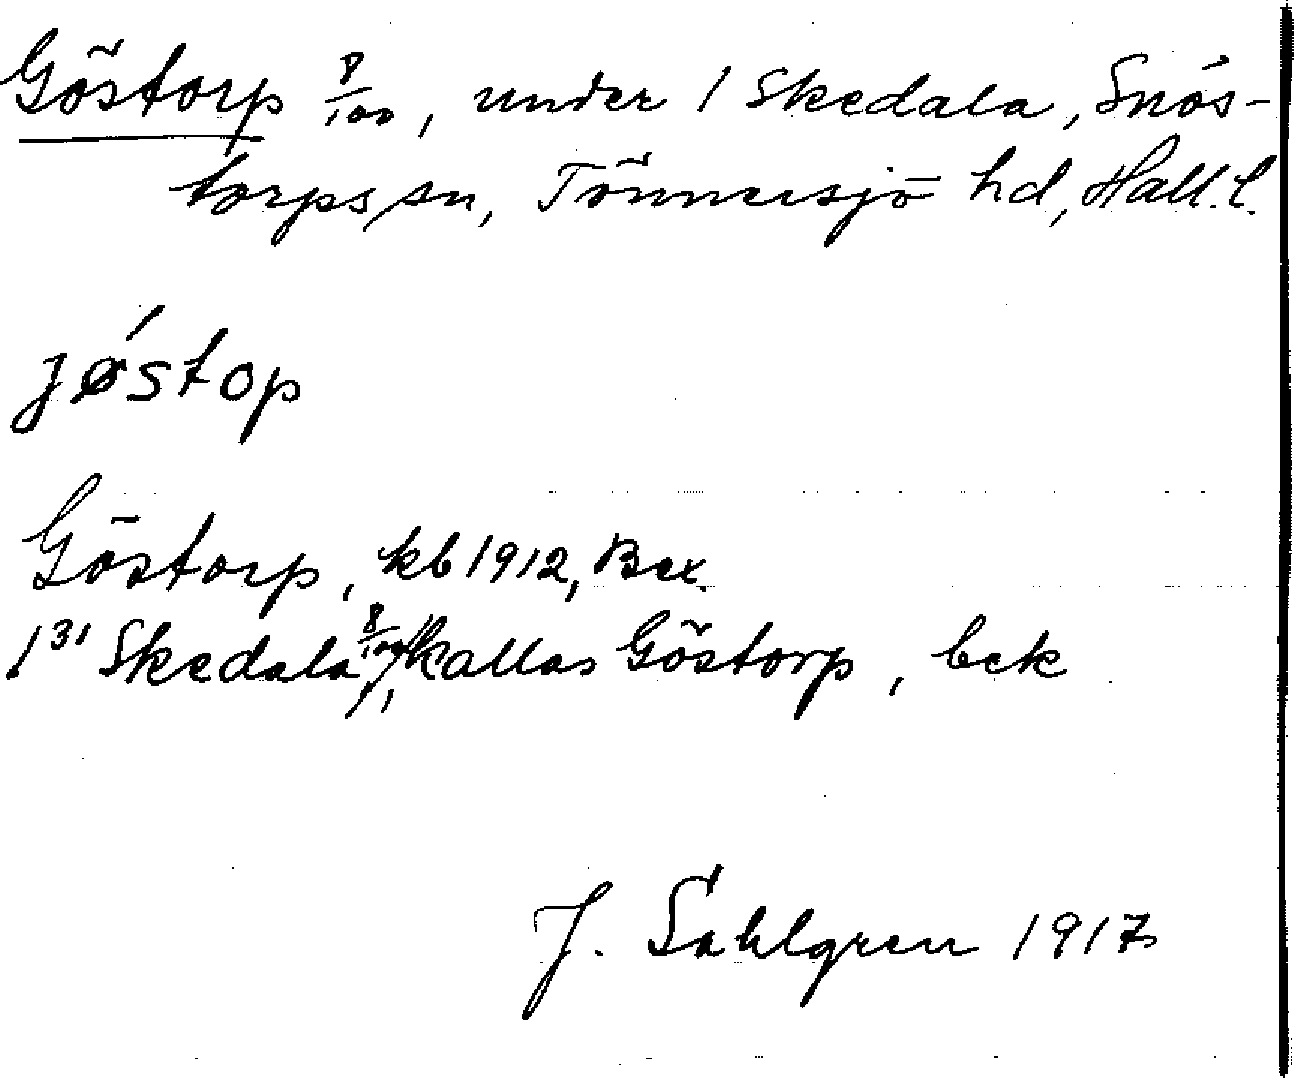 Göstorp 8/100, under 1 Skedala, Snös-
torps sn, Tönnersjö hd, Hall. l.
jøstop
Göstorp, kb 1912, Bex.
1³¹ Skedala 8/100, kallas Göstorp, bek
J. Sahlgren 1917